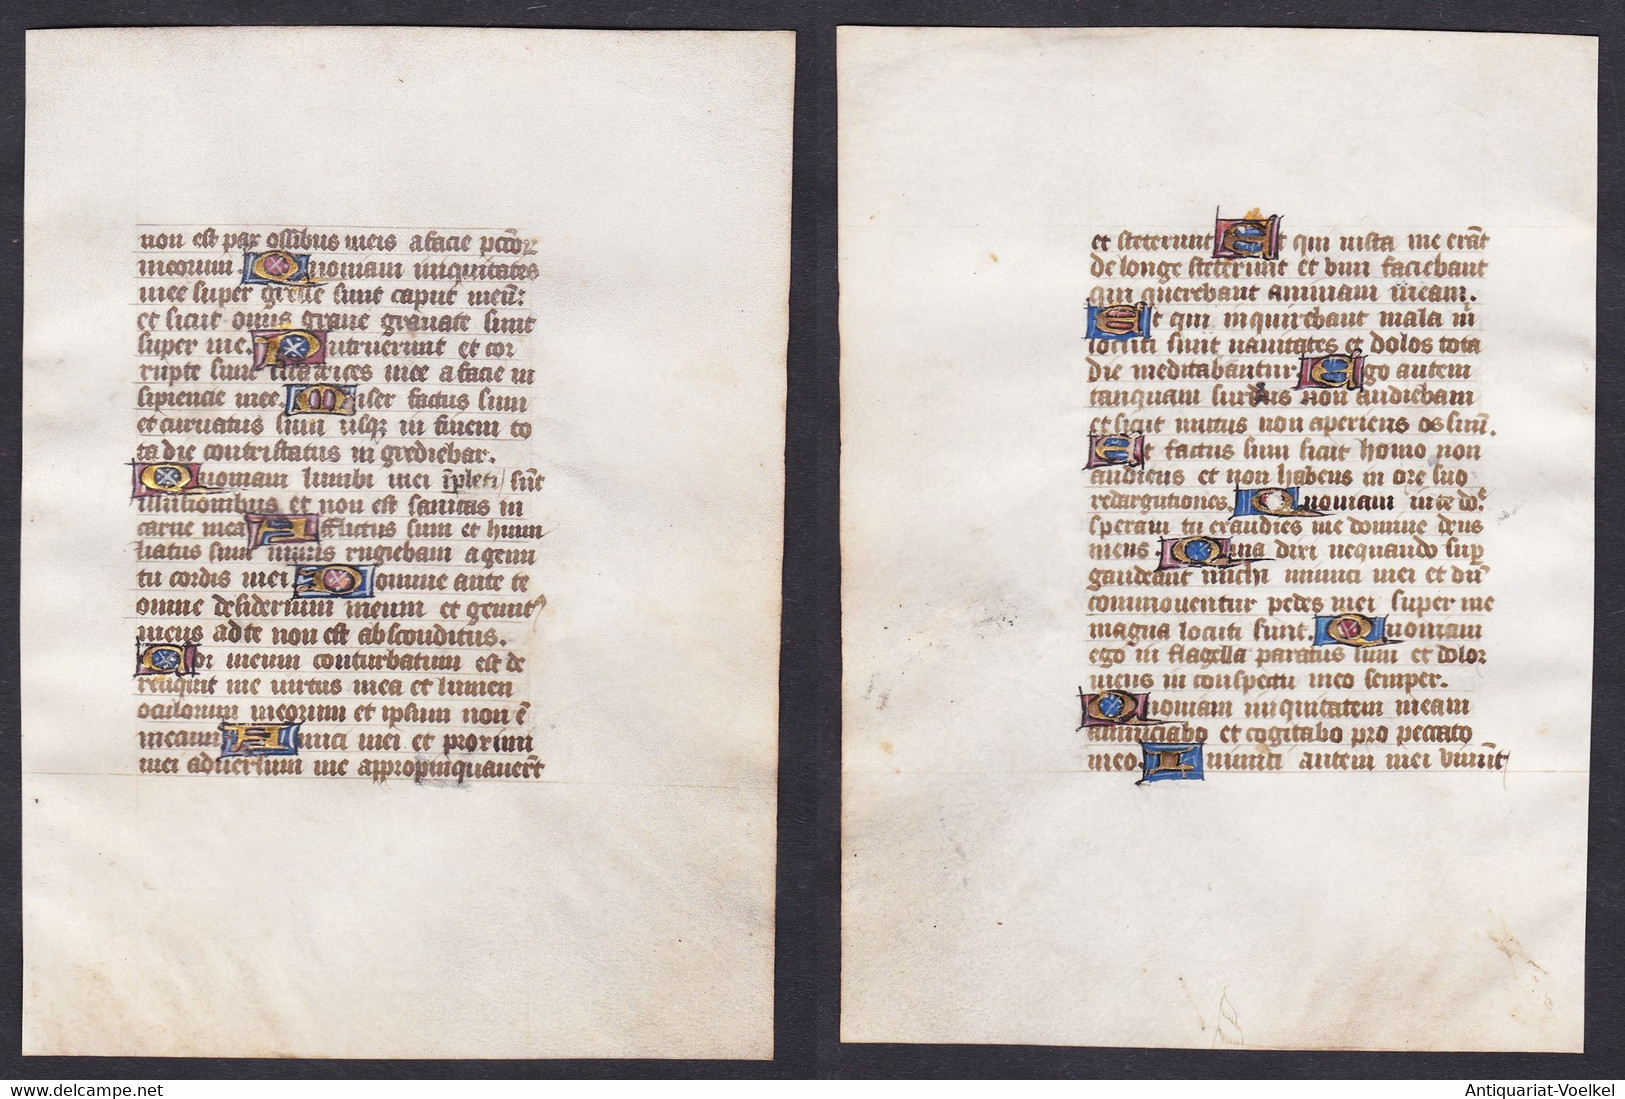 non est pax ossibus meis a facie pctōꝝ
meorum. Quoniam iniquitates
mee super gresse sunt caput meū:
et sicut onus graue grauate sunt
super me. Putruerunt et cor
rupte sunt cicatrices mee a facie in
sipiencie mee. Miser factus sum
et curuatus sum usqꝫ in finem to
ta die contristatus in grediebar.
Quoniam lumbi mei īpleti sūt
illusionibus et non est sanitas in
carne mea Afflictus sum et humi
liatus sum nimis rugiebam a gemi
tu cordis mei. Domine ante te
omne desiderium meum et gemitꝰ
meus ad te non est absconditus.
Cor meum conturbatum est de
reliquit me uirtus mea et lumen
oculorum meorum et ipsum non ē
mecum Amici mei et proximi
mei aduersum me appropinquauerūt
et steterunt Et qui iuxta me erāt
de longe steterunt et uim faciebant
qui querebant animam meam.
Et qui inquirebant mala m̄
locuti sunt uanitates et dolos tota
die meditabantur. Ego autem
tanquam surdus non audiebam
et sicut mutus non aperiens os suū.
Et factus sum sicut homo non
audiens et non habens in ore suo
redargutiones. Quoniam in te do͛
speraui tu exaudies me domine deus
meus. Quia dixi nequando sup̄
gaudeant michi inimici mei et dū
commouentur pedes mei super me
magna locuti sunt. Quoniam
ego in flagella paratus sum et dolor
meus in conspectu meo semper.
Quoniam iniquitatem meam
annunciabo et cogitabo pro peccato
meo. Inimici autem mei uiuūt
Antiquariat-Voelkel
delcampe.net